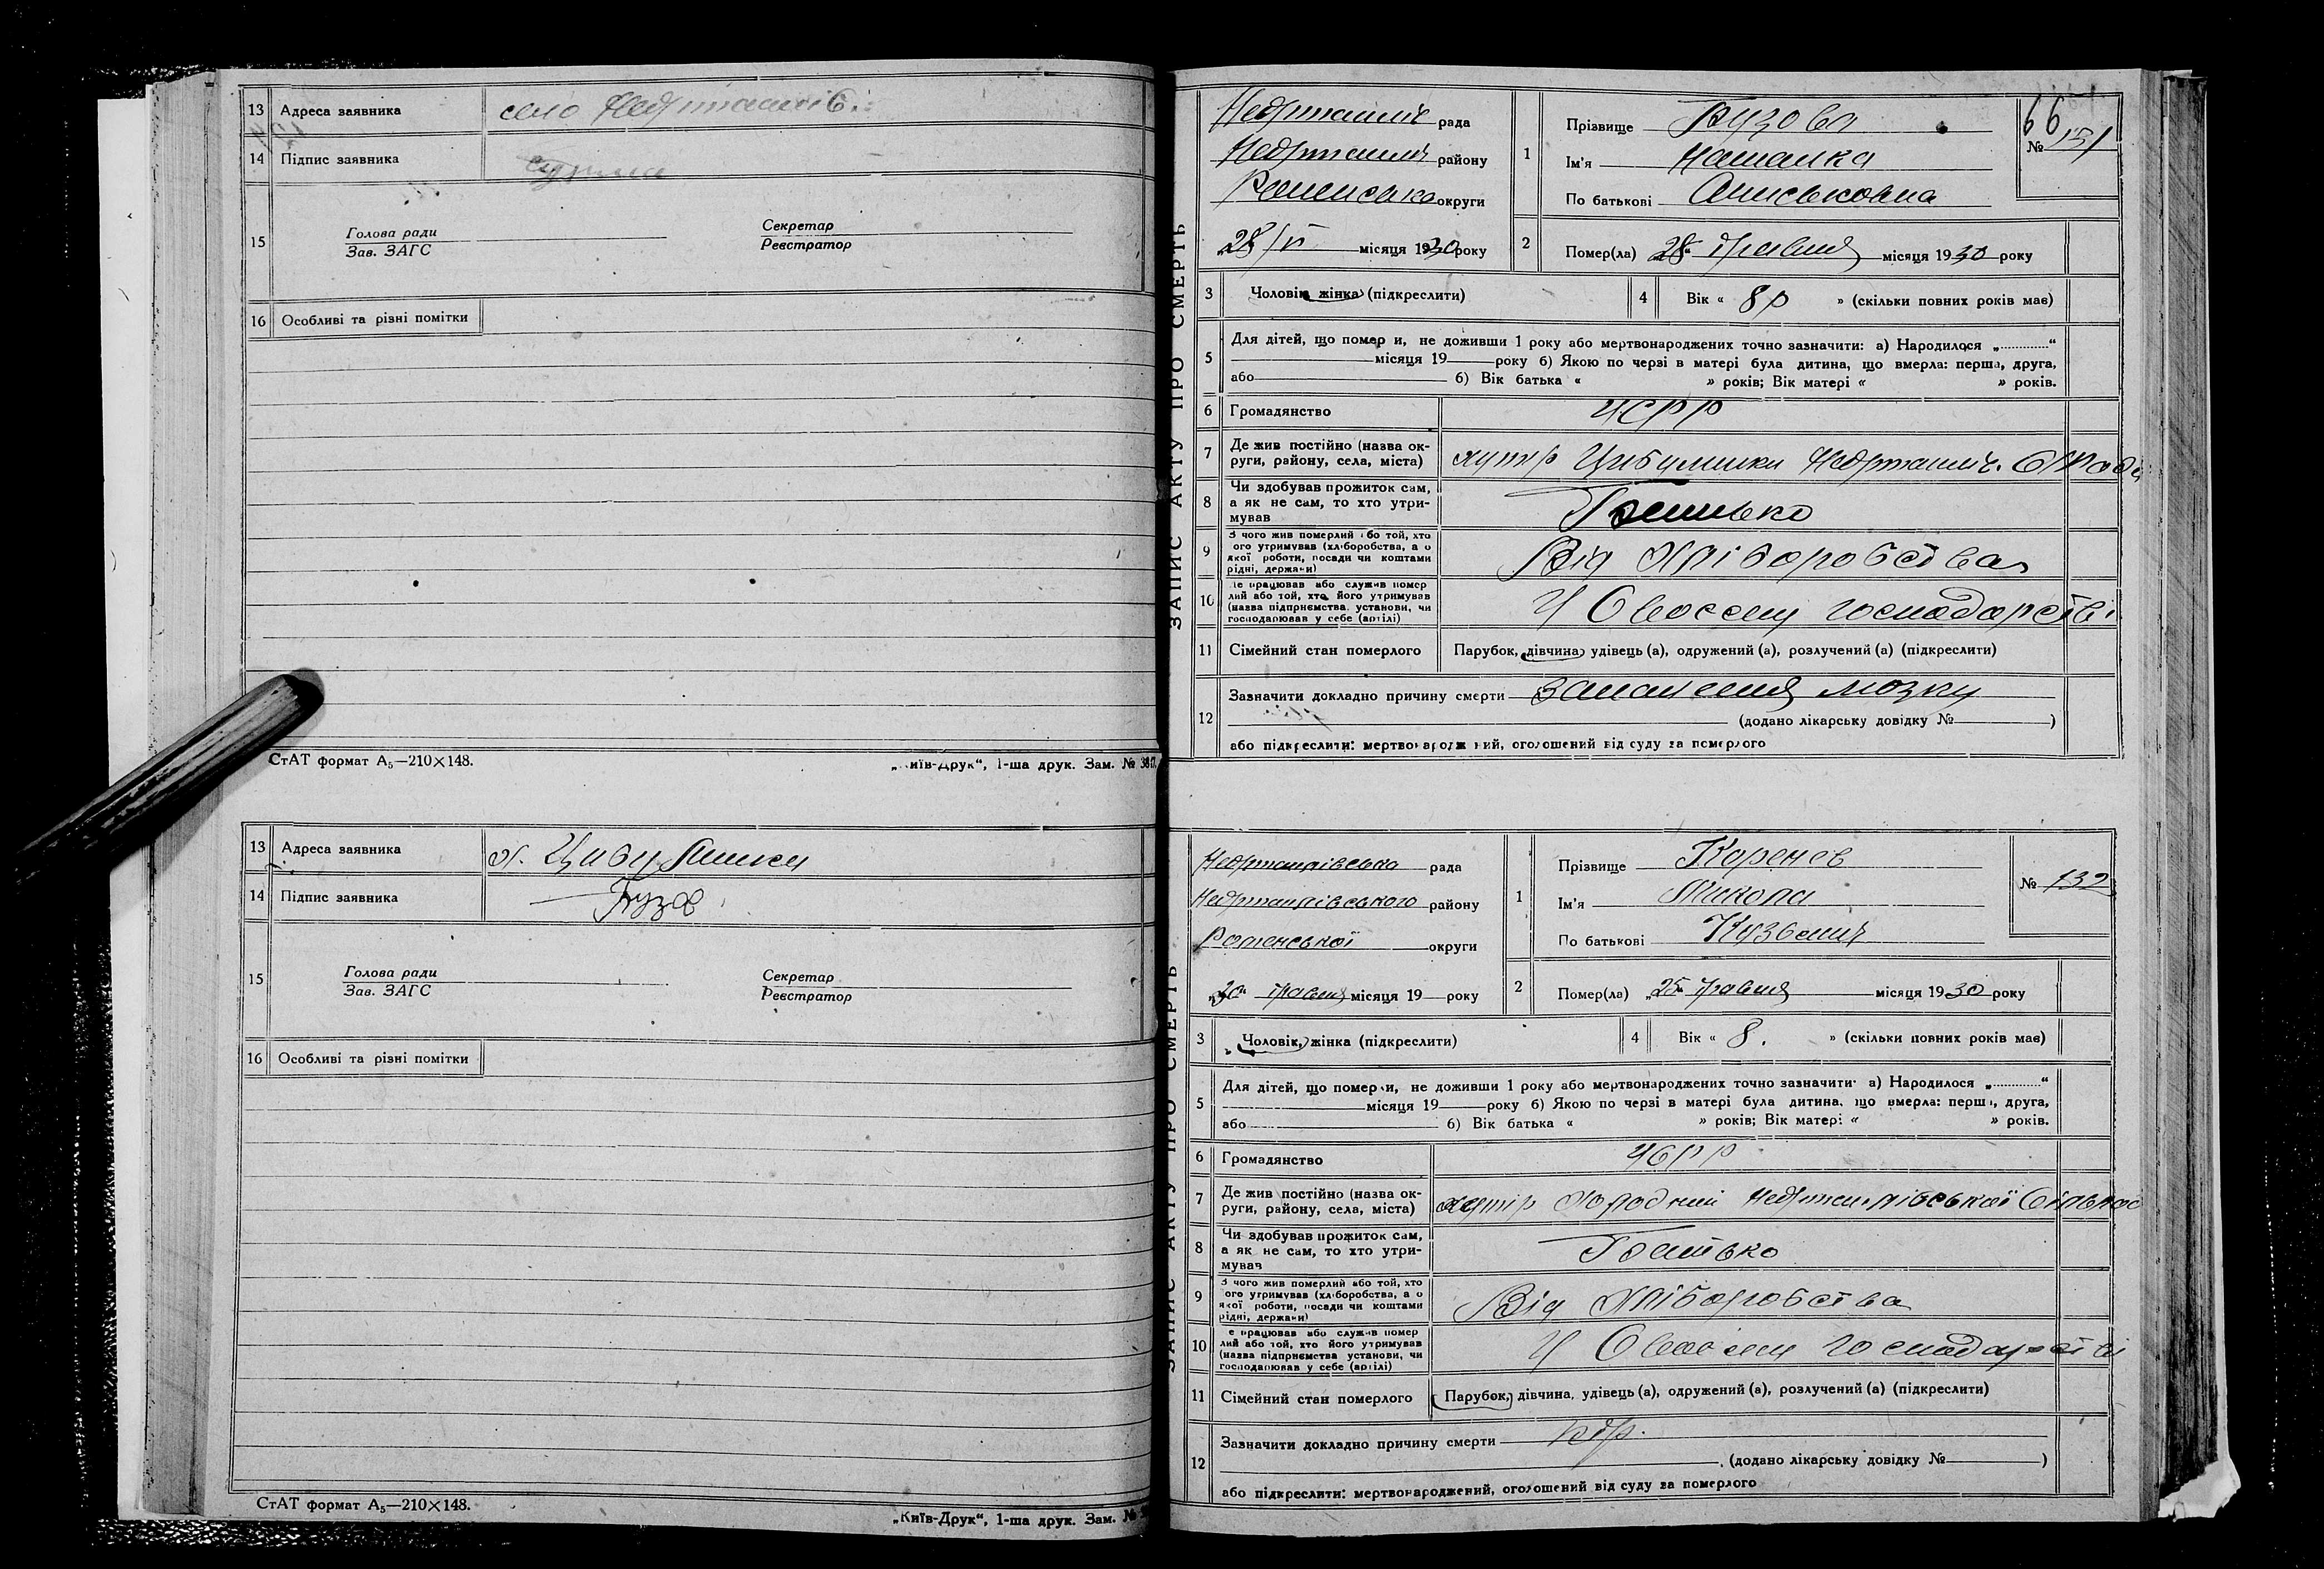 13 Адреса заявника село Недригайлів.
14 Підпис заявника
15 Голова ради Секретар
Зав. ЗАГС Реєстратор
16 Особливі та різні помітки
СтАТ формат А₅—210×148. „Київ-Друк“, 1-ша друк. Зам. №
13 Адреса заявника х. Цибулинки
14 Підпис заявника Гузов
15 Голова ради Секретар
Зав. ЗАГС Реєстратор
16 Особливі та різні помітки
СтАТ формат А₅—210×148. „Київ-Друк“, 1-ша друк. Зам. №
ЗАПИС АКТУ ПРО СМЕРТЬ
66
№ 131
Недригайлів рада
Недригайлів району
Роменська округи
„28/VI місяця 1930 року
1 Прізвище Гузова
Ім'я Наталка
По батькові
2 Помер(ла) „28“ травня місяця 1930 року
3 Чоловік, жінка (підкреслити)
4 Вік « 8 р » (скільки повних років має)
5 Для дітей, що померли, не доживши 1 року або мертвонароджених точно зазначити: а) Народилося „............“
місяця 19 року б) Якою по черзі в матері була дитина, що вмерла: перша, друга,
або б) Вік батька « » років; Вік матері « » років.
6 Громадянство УСРР
7 Де жив постійно (назва ок-
руги, району, села, міста) хутір Цибулинки Недригайлів. с/ради
8 Чи здобував прожиток сам,
а як не сам, то хто утри-
мував Батько
9 З чого жив померлий або той, хто
його утримував (хліборобства, або
якої роботи, посади чи коштами
рідні, держави) Від хліборобства
10 Де працював або служив помер
лий або той, хто його утримував
(назва підприємства, установи, чи
господарював у себе (артілі) У своєму господарстві
11 Сімейний стан померлого Парубок, дівчина, удівець (а), одружений (а), розлучений (а) (підкреслити)
12 Зазначити докладно причину смерти запалення мозку
(додано лікарську довідку № )
або підкреслити: мертвонароджений, оголошений від суду за померлого
ЗАПИС АКТУ ПРО СМЕРТЬ
№ 132
Недригайлівська рада
Недригайлівського району
Роменської округи
„30“ травня місяця 19 року
1 Прізвище Коренєв
Ім'я Микола
По батькові Кузьмич
2 Помер(ла) „25“ травня місяця 1930 року
3 Чоловік, жінка (підкреслити)
4 Вік « 8. » (скільки повних років має)
5 Для дітей, що померли, не доживши 1 року або мертвонароджених точно зазначити: а) Народилося „............“
місяця 19 року б) Якою по черзі в матері була дитина, що вмерла: перша, друга,
або б) Вік батька « » років; Вік матері « » років.
6 Громадянство УСРР
7 Де жив постійно (назва ок-
руги, району, села, міста) хутір Холодний Недригайлівської
8 Чи здобував прожиток сам,
а як не сам, то хто утри-
мував Батько
9 З чого жив померлий або той, хто
його утримував (хліборобства, або
якої роботи, посади чи коштами
рідні, держави) Від хліборобства
10 Де працював або служив помер
лий або той, хто його утримував
(назва підприємства установи, чи
господарював у себе (артілі) У своєму господарстві
11 Сімейний стан померлого Парубок, дівчина, удівець (а), одружений (а), розлучений (а) (підкреслити)
12 Зазначити докладно причину смерти
(додано лікарську довідку № )
або підкреслити: мертвонароджений, оголошений від суду за померлого